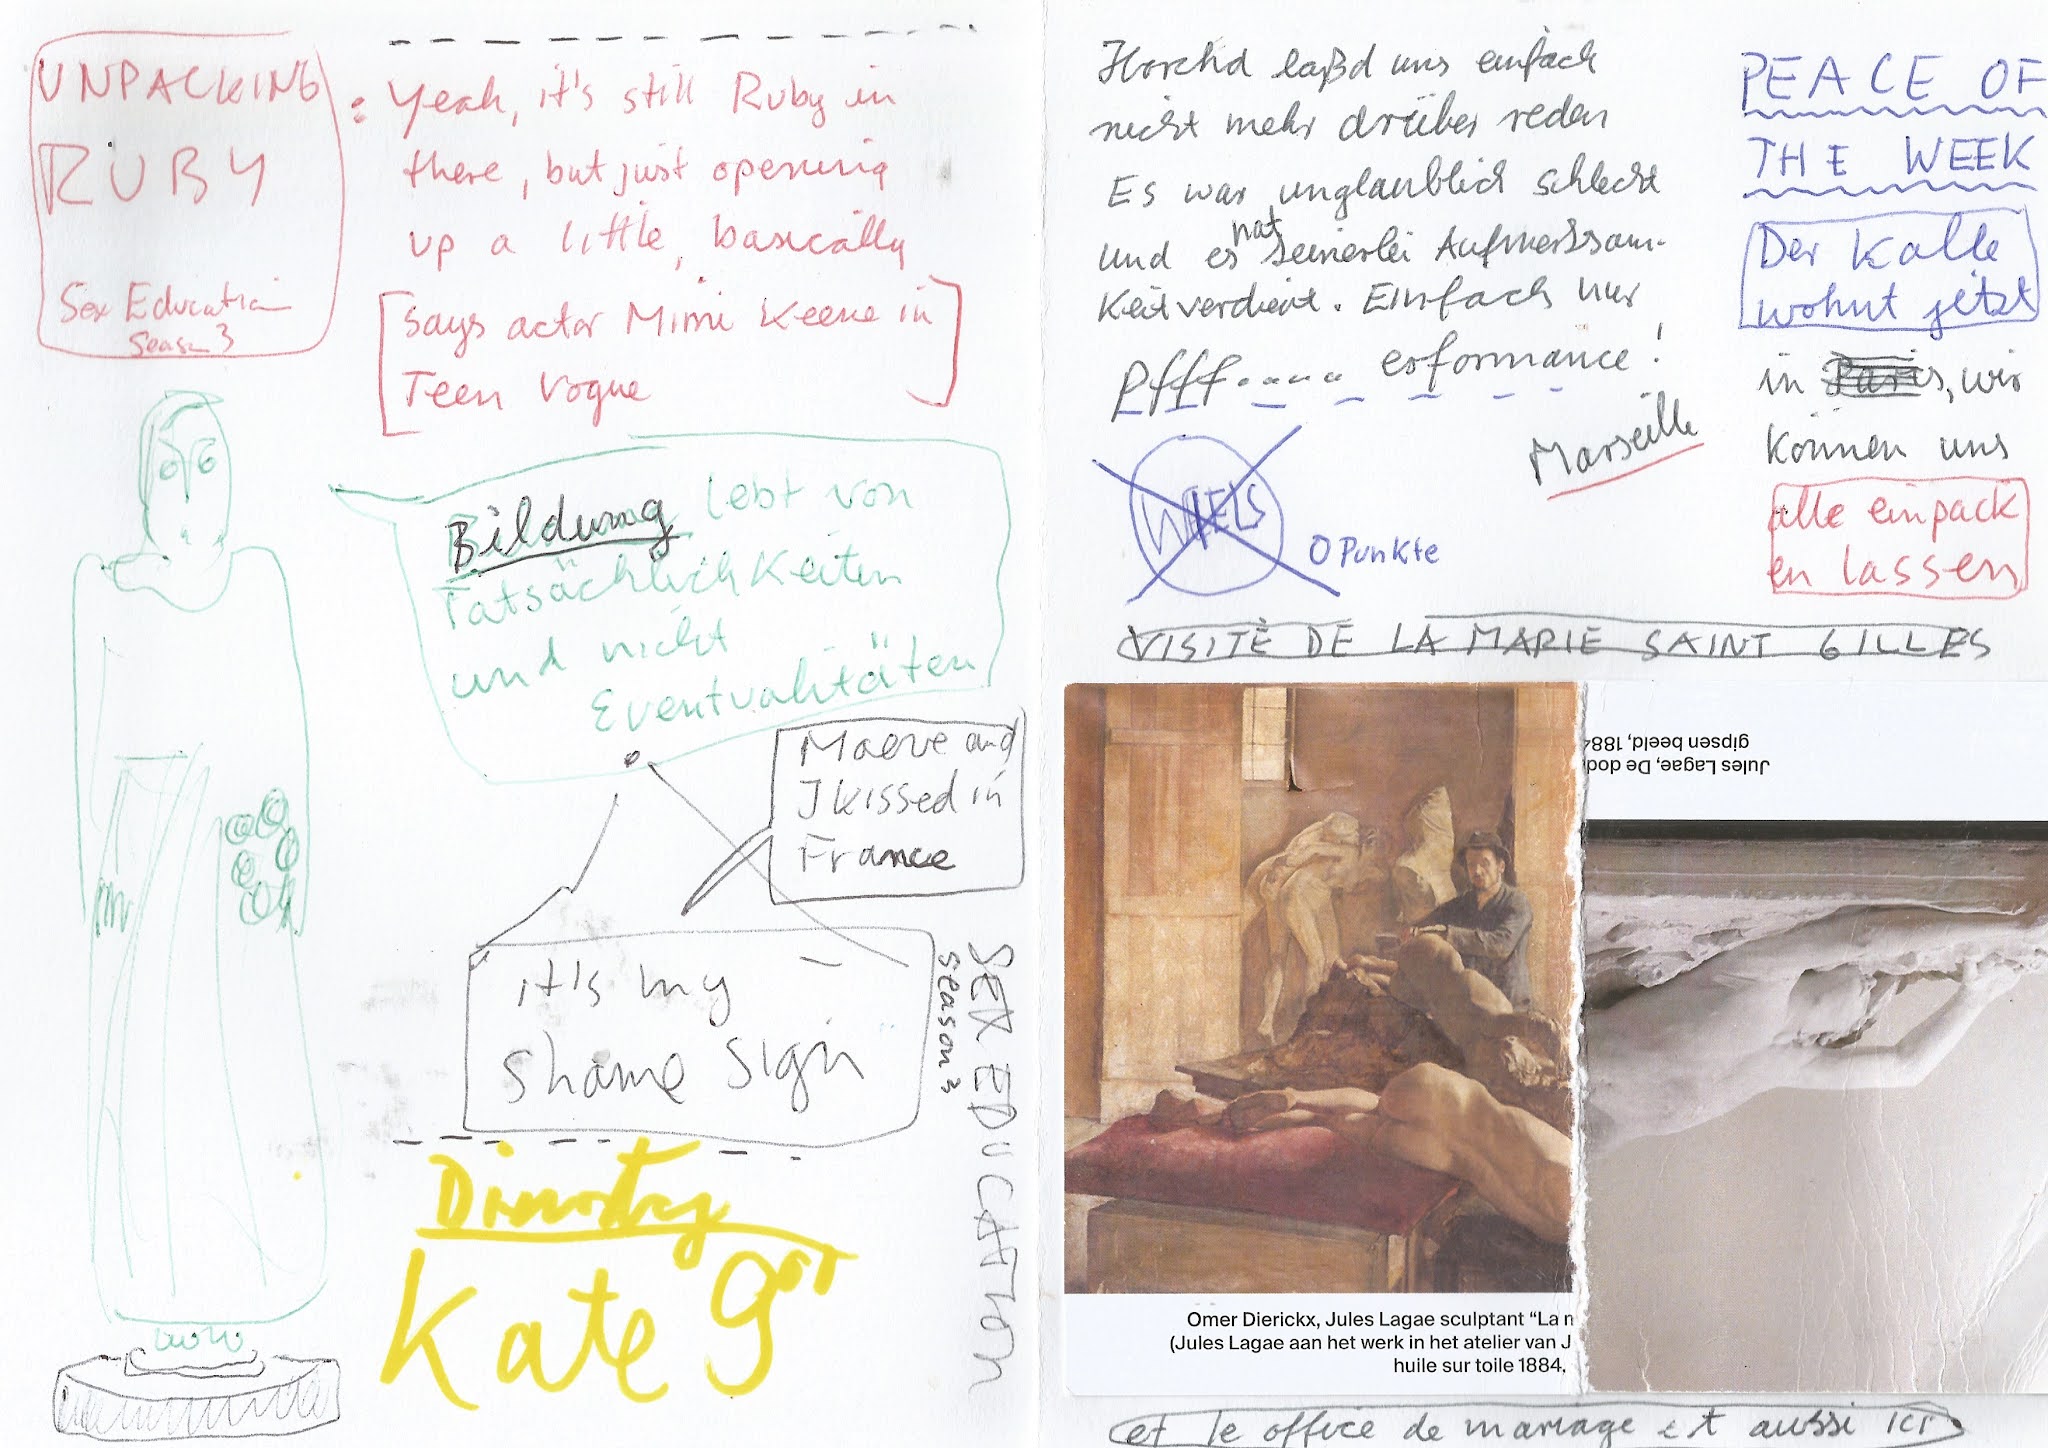 UNPACKING
RUBY
Sex Education
Season 3
: Yeah, it's still Ruby in
there, but just opening
up a little, basically
[says actor Mimi Keene in
Teen Vogue]
Bildung lebt von
Tatsächlichkeiten
und nicht
Eventualitäten
Maeve and
I kissed in
France
it's my
shame sign
SEX EDUCATION
season 3
Kate 9
Horchd laßd uns einfach
nicht mehr drüber reden
Es war unglaublich schlecht
und es hat keinerlei Aufmerksam-
keit verdient. Einfach nur
pfff.... erformance!
WIELS
0 Punkte
Marseille
PEACE OF
THE WEEK
Der Kalle
wohnt jetzt
in Paris, wir
können uns
alle einpack
en lassen
VISITÈ DE LA MARIE SAINT GILLES
Jules Lagae, De dod
gipsen beeld, 1884
Omer Dierickx, Jules Lagae sculptant “La m
(Jules Lagae aan het werk in het atelier van J
huile sur toile 1884,
et le office de mariage est aussi ici